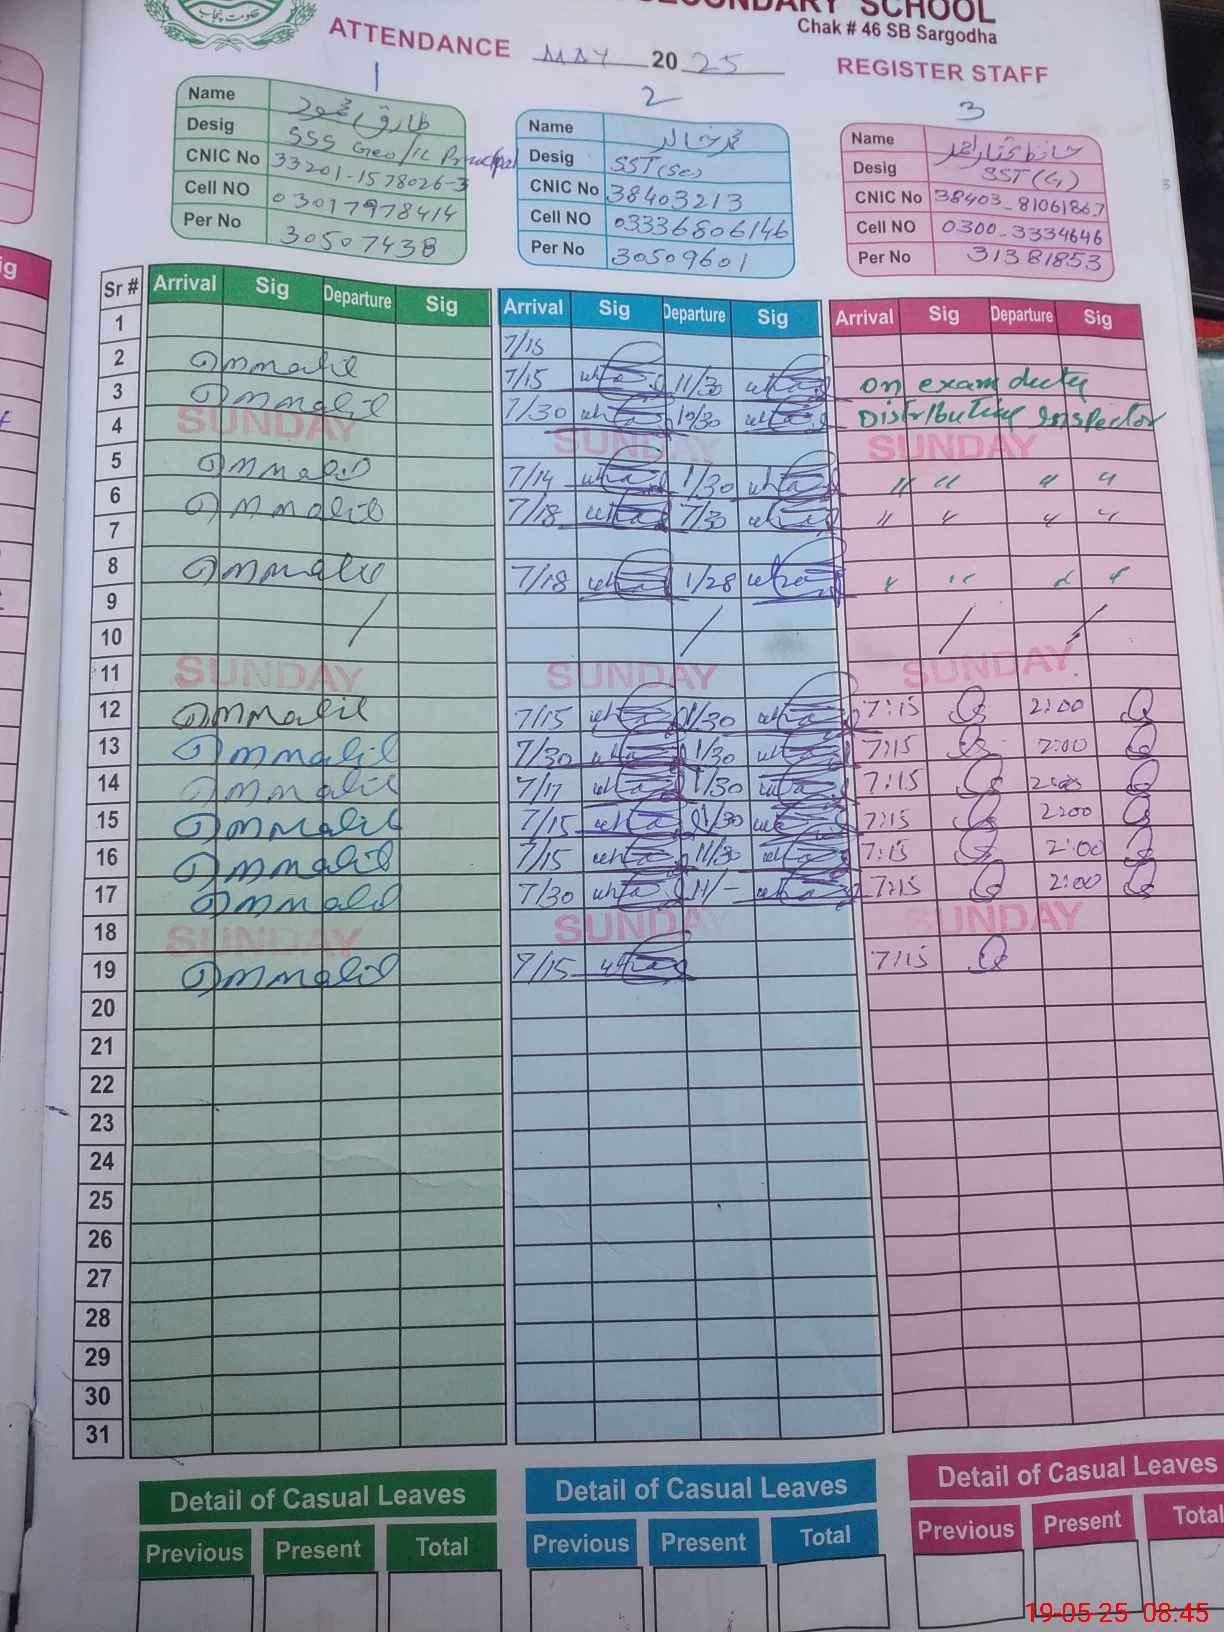 SECONDARY SCHOOL
Chak # 46 SB Sargodha
حکومت پنجاب
ATTENDANCE MAY 2025 REGISTER STAFF
1
Name طارق محمود
Desig SSS Geo/IC Principal
CNIC No 33201-1578026-3
Cell NO 03017978414
Per No 30507438
2
Name محمد خالد
Desig SST(Sc)
CNIC No 38403213
Cell NO 03336806146
Per No 30509601
3
Name
Desig SST(G)
CNIC No 38403-81061867
Cell NO 0300-3334646
Per No 31381853
Sr # Arrival Sig Departure Sig Arrival Sig Departure Sig Arrival Sig Departure Sig
1 7/15
2 7/15 11/30 on exam duty
3 7/30 10/30 Distributing Inspector
4 SUNDAY SUNDAY SUNDAY
5 7/14 1/30 " " " "
6 7/18 7/30 " " " "
7
8 7/18 1/28 " " " "
9 / / / /
10
11 SUNDAY SUNDAY SUNDAY
12 7/15 1/30 7:15 2:00
13 7/30 1/30 7:15 2:00
14 7/17 1/30 7:15 2:00
15 7/15 1/30 7:15 2:00
16 7/15 11/30 7:15 2:00
17 7/30 11/- 7:15 2:00
18 SUNDAY SUNDAY SUNDAY
19 7/15 7:15
20
21
22
23
24
25
26
27
28
29
30
31
Detail of Casual Leaves Detail of Casual Leaves Detail of Casual Leaves
Previous Present Total Previous Present Total Previous Present Total
19-05-25 08:45